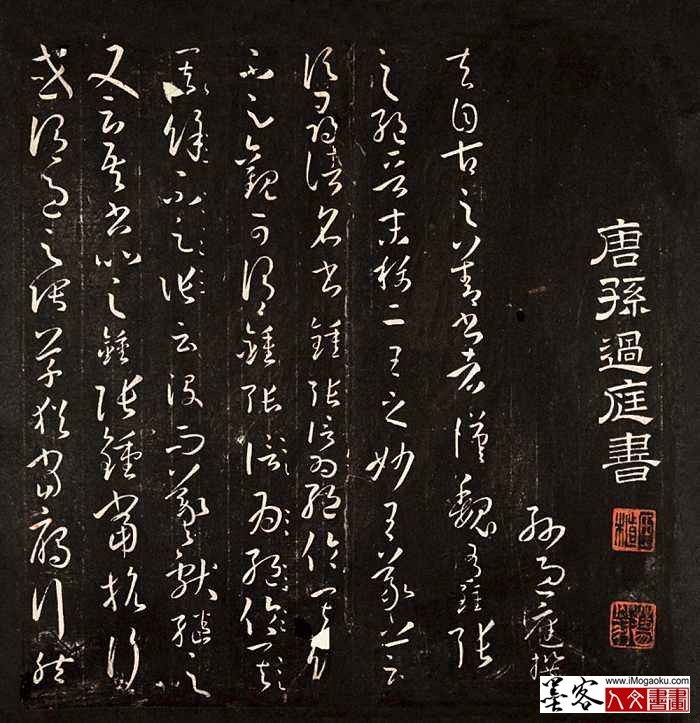 唐孫過庭書
孫過庭撰
夫自古之善書者漢魏有鍾張
之絕晉末稱二王之妙王羲之云
頃尋諸名書鍾張信為絕倫其餘
不足觀可謂鍾張信為絕倫其
餘不足觀云沒而羲獻繼之
又云吾書比之鍾張鍾當抗行
或謂過之張草猶當雁行然
墨客
人文書畫
www.iMogaoku.com